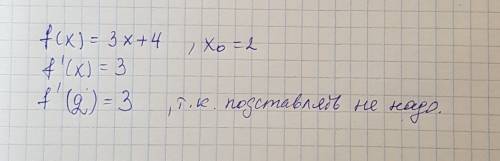 f(x) = 3x+4 , x₀ = 2
f'(x) = 3
f'(2) = 3 , т.к. подставлять не надо.